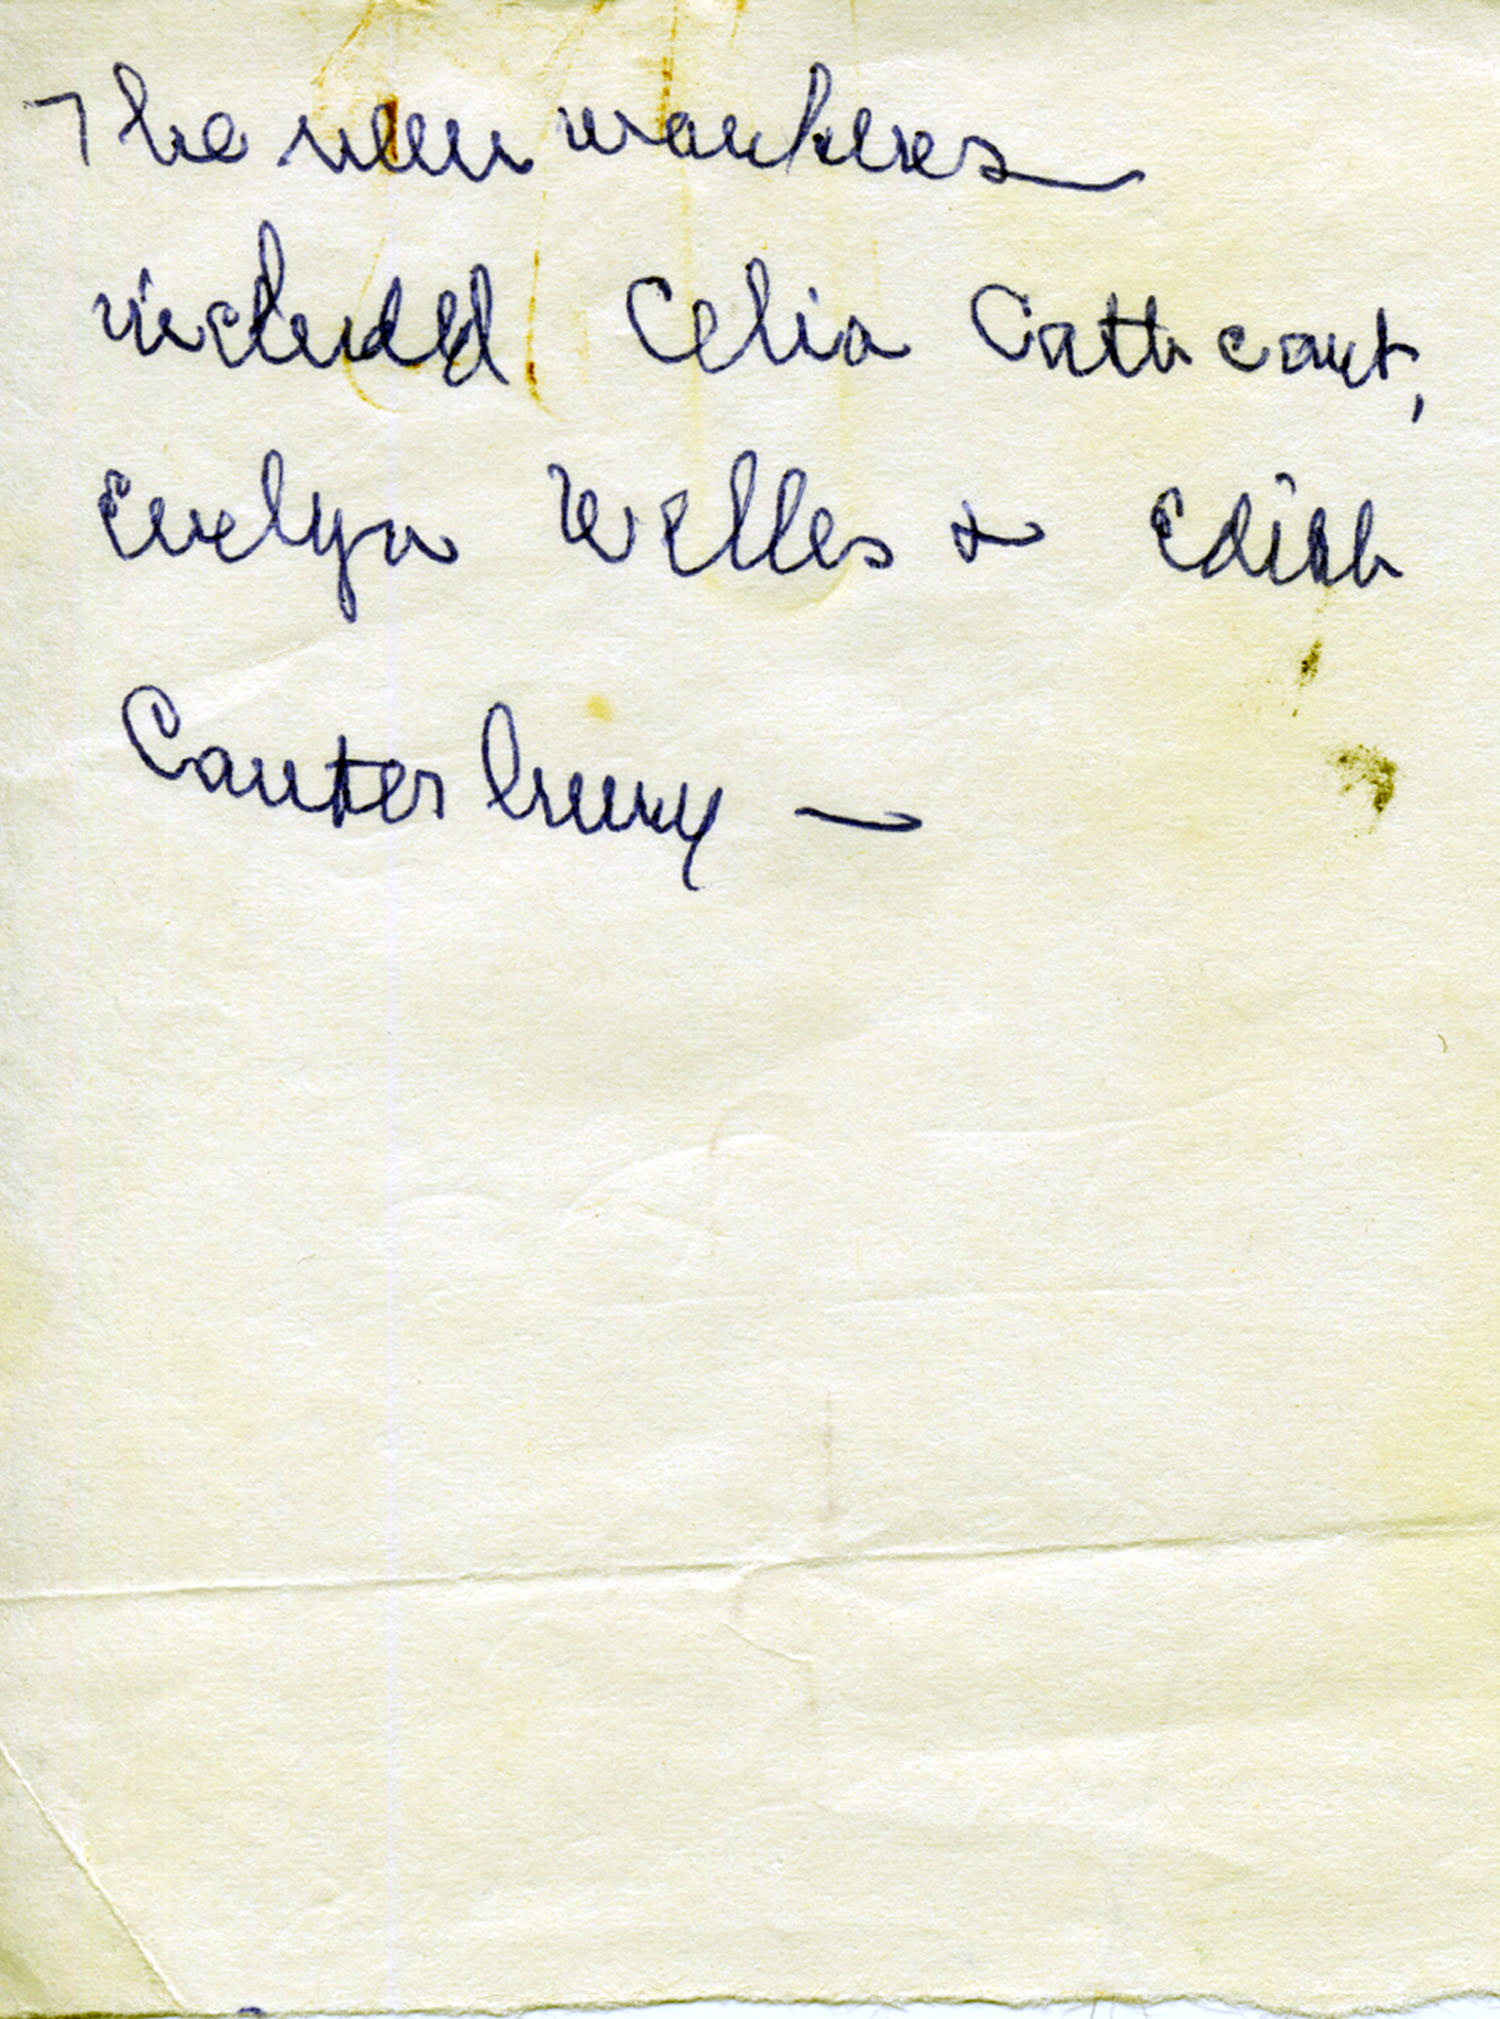 The new workers
included Celia Cathcart,
Evelyn Welles & Edith
Canterbury —